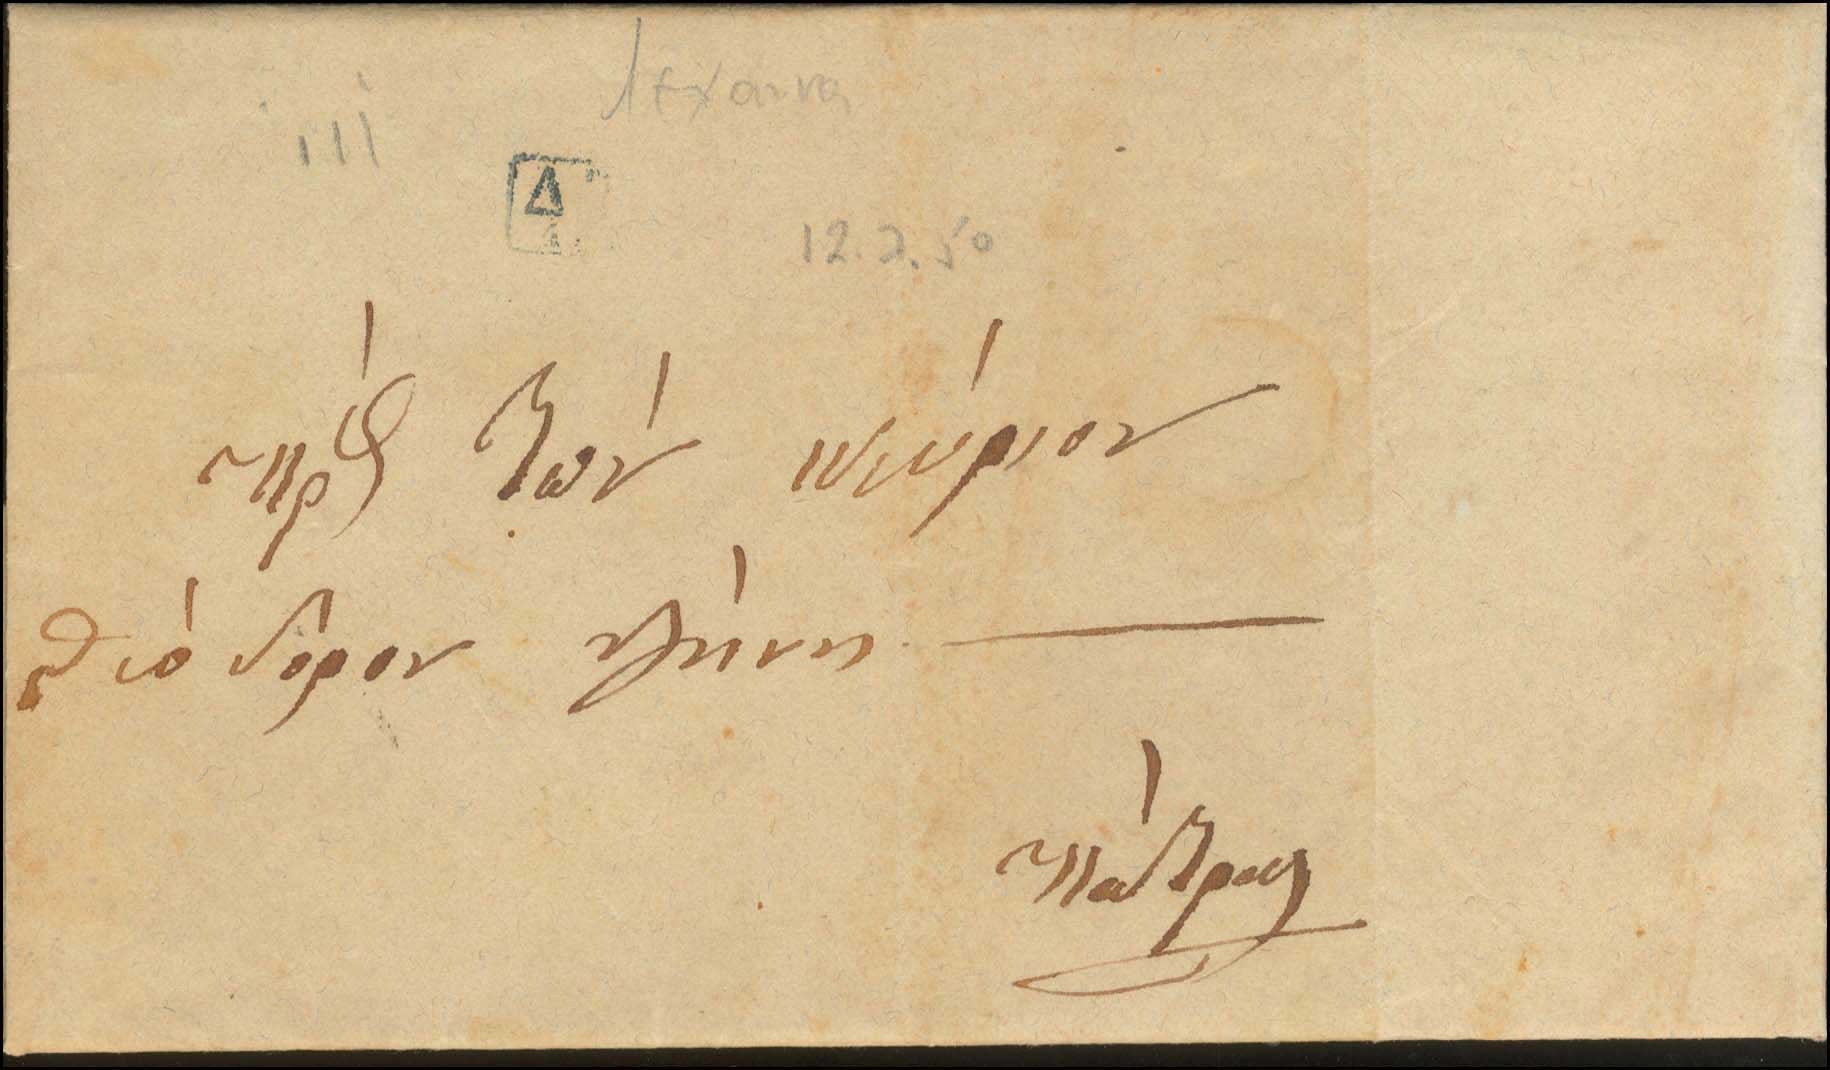 Λεχαινα
Δ
12.2.50
πρὸς τὸν κύριον
θεόδορον
Πάτρας